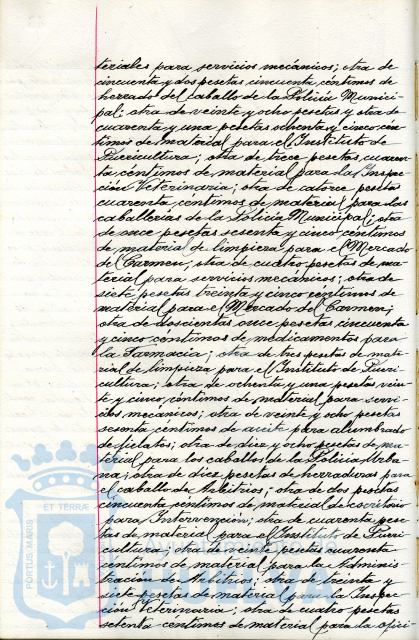 teriales para servicios mecánicos; otra de
cincuenta y dos pesetas cincuenta céntimos de
herrado del caballo de la Policía Munici-
pal; otra de veinte y ocho pesetas y otra de
cuarenta y una pesetas ochenta y cinco cén
timos de material para el Instituto de
Puericultura; otra de trece pesetas cuaren
ta céntimos de material para la Inspec-
ción Veterinaria; otra de catorce pesetas
cuarenta céntimos de material para las
caballerías de la Policía Municipal; otra
de once pesetas sesenta y cinco céntimos
de material de limpieza para el Mercado
del Carmen; otra de cuatro pesetas de ma-
terial para servicios mecánicos; otra de
siete pesetas treinta y cinco céntimos de
material para el Mercado del Carmen;
otra de doscientas once pesetas cincuenta
y cinco céntimos de medicamentos para
la Farmacia; otra de tres pesetas de mate
rial de limpieza para el Instituto de Pueri-
cultura; otra de ochenta y una pesetas vein
te y cinco céntimos de material para servi-
cios mecánicos; otra de veinte y ocho pesetas
sesenta céntimos de aceite para alumbrado
de fielatos; otra de diez y ocho pesetas de ma-
terial para los caballos de la Policía Urba-
na; otra de diez pesetas de herraduras para
el caballo de Arbitrios; otra de dos pesetas
cincuenta céntimos de material de escritorio
para Intervención; otra de cuarenta pese-
tas de material para el Instituto de Pueri
cultura; otra de veinte pesetas cuarenta
céntimos de material para la Adminis-
tración de Arbitrios; otra de treinta y
siete pesetas de material para la Inspec-
ción Veterinaria; otra de cuatro pesetas
setenta céntimos de material para la ofici
PORTUS MARIS
ET TERRÆ